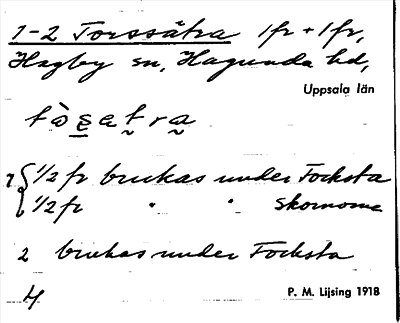 1-2 Torssätra 1 fr + 1 fr,
Hagby sn, Hagunda hd,
Uppsala län
tòsatra
1 { 1/2 fr brukas under Focksta
1/2 fr " " Skornome
2 brukas under Focksta
4
P. M. Lijsing 1918